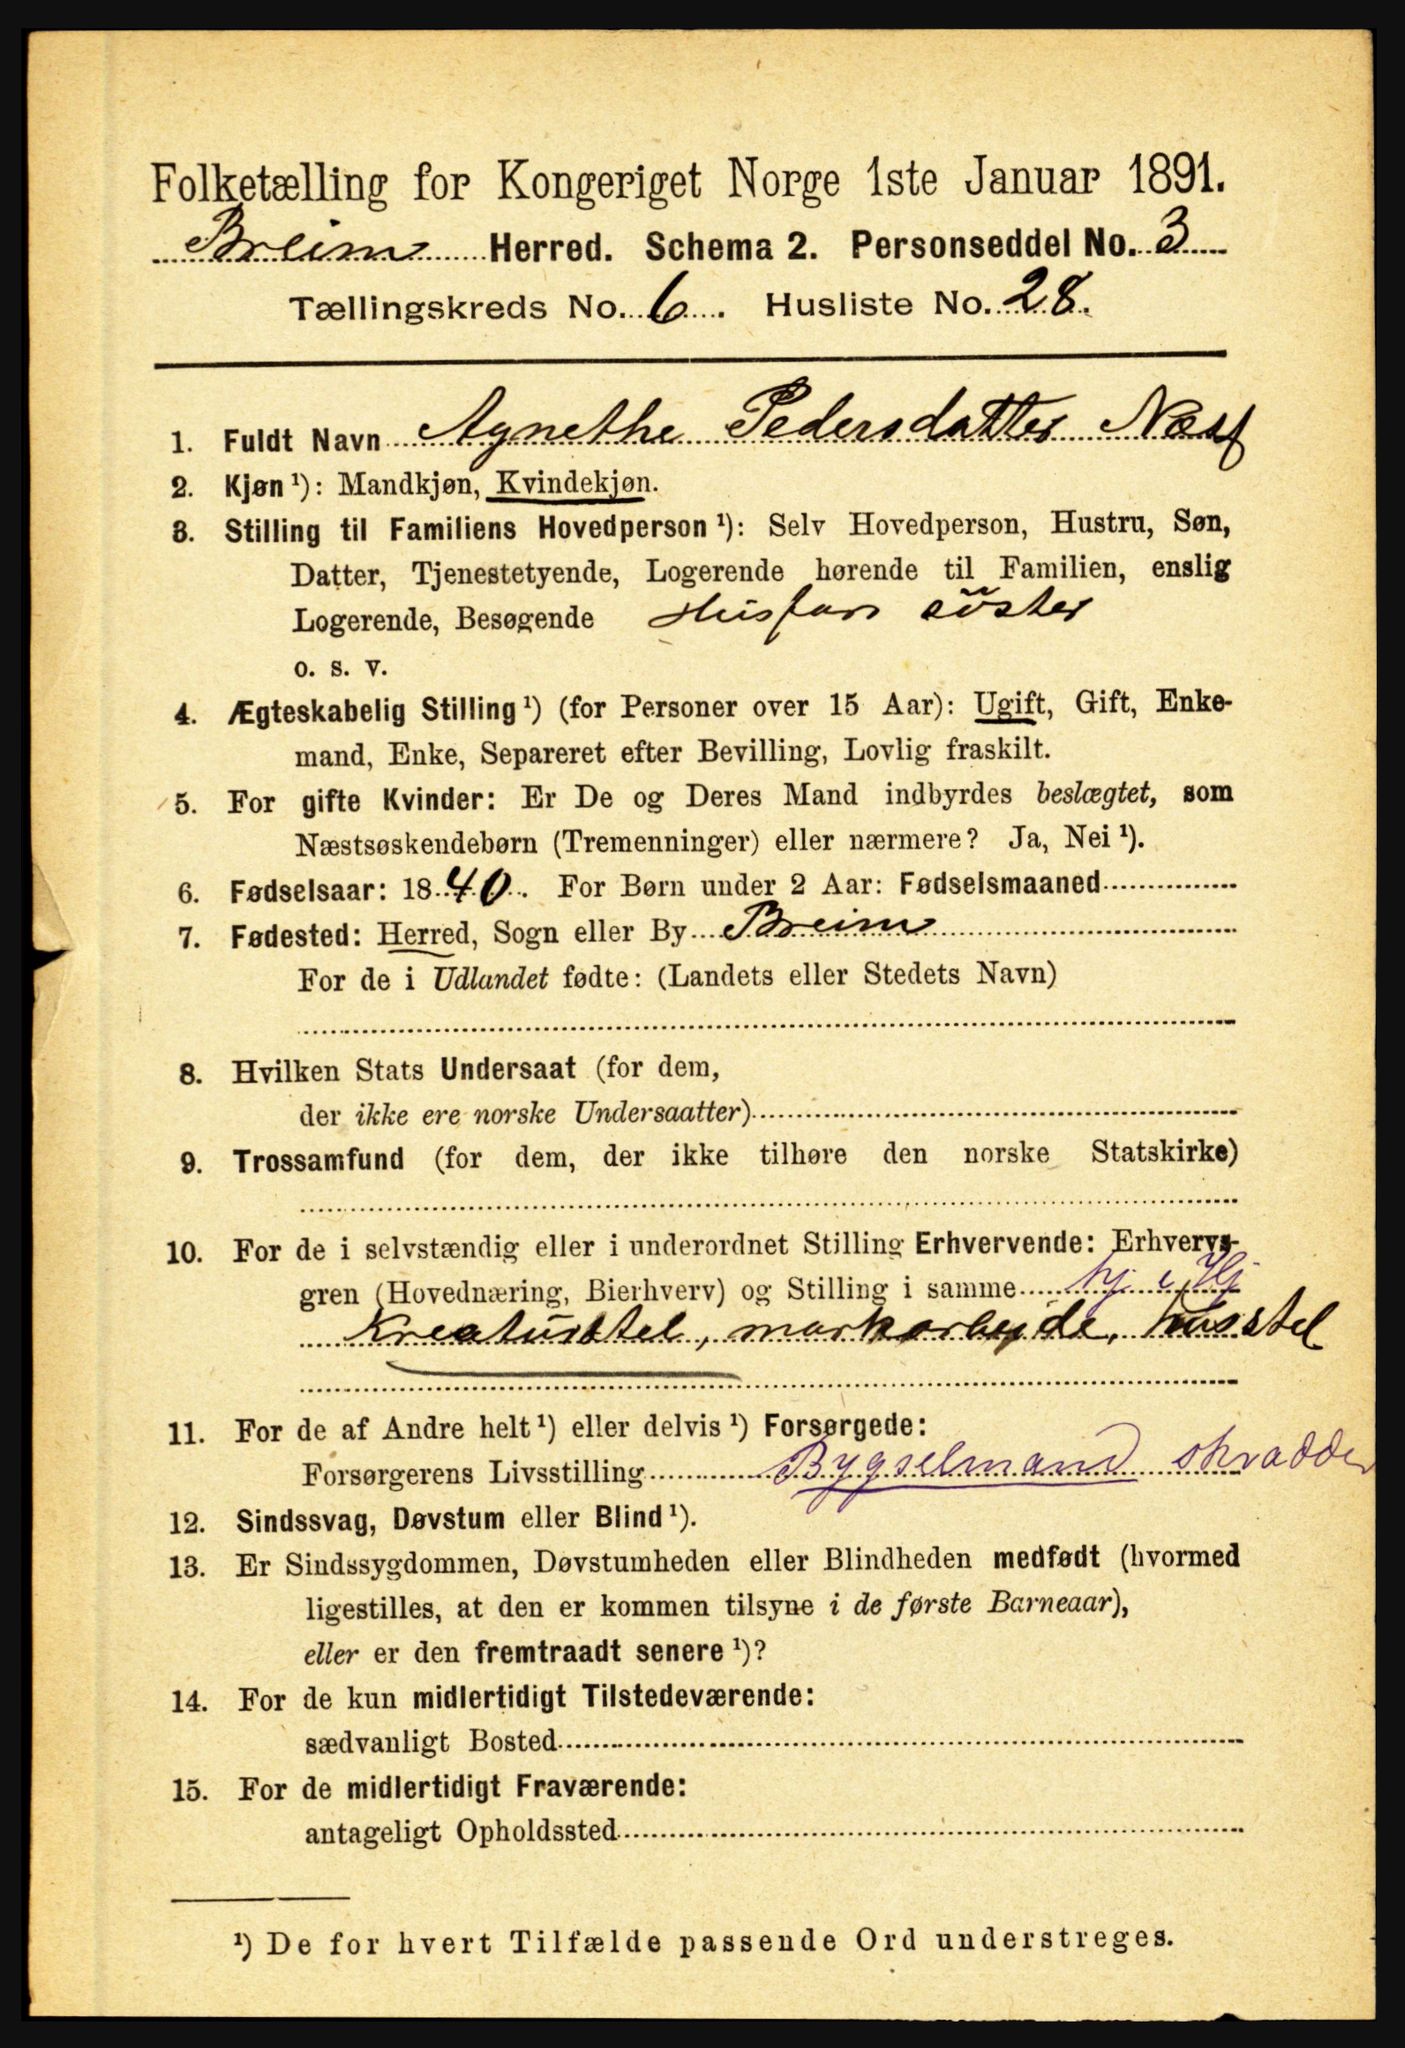 Folketælling for Kongeriget Norge 1ste Januar 1891.
Breim Herred. Schema 2. Personseddel No. 3
Tællingskreds No. 6. Husliste No. 28.
1. Fuldt Navn Agnethe Pedersdatter Næss
2. Kjøn ¹): Mandkjøn, Kvindekjøn.
3. Stilling til Familiens Hovedperson ¹): Selv Hovedperson, Hustru, Søn,
Datter, Tjenestetyende, Logerende hørende til Familien, enslig
Logerende, Besøgende Husfars söster
o. s. v.
4. Ægteskabelig Stilling ¹) (for Personer over 15 Aar): Ugift, Gift, Enke-
mand, Enke, Separeret efter Bevilling, Lovlig fraskilt.
5. For gifte Kvinder: Er De og Deres Mand indbyrdes beslægtet, som
Næstsøskendebørn (Tremenninger) eller nærmere? Ja, Nei ¹).
6. Fødselsaar: 1840. For Børn under 2 Aar: Fødselsmaaned
7. Fødested: Herred, Sogn eller By Breim
For de i Udlandet fødte: (Landets eller Stedets Navn)
8. Hvilken Stats Undersaat (for dem,
der ikke ere norske Undersaatter)
9. Trossamfund (for dem, der ikke tilhøre den norske Statskirke)
10. For de i selvstændig eller i underordnet Stilling Erhvervende: Erhvervs-
gren (Hovednæring, Bierhverv) og Stilling i samme
Kreaturstel, markarbeide, husstel
11. For de af Andre helt ¹) eller delvis ¹) Forsørgede:
Forsørgerens Livsstilling Bygselmand skrædder
12. Sindssvag, Døvstum eller Blind ¹).
13. Er Sindssygdommen, Døvstumheden eller Blindheden medfødt (hvormed
ligestilles, at den er kommen tilsyne i de første Barneaar),
eller er den fremtraadt senere ¹)?
14. For de kun midlertidigt Tilstedeværende:
sædvanligt Bosted
15. For de midlertidigt Fraværende:
antageligt Opholdssted
¹) De for hvert Tilfælde passende Ord understreges.